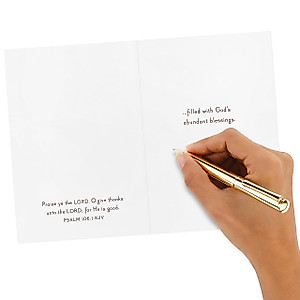 Praise ye the LORD. O give thanks
unto the LORD, for He is good.
PSALM 106:1 KJV
...filled with God's
abundant blessings.